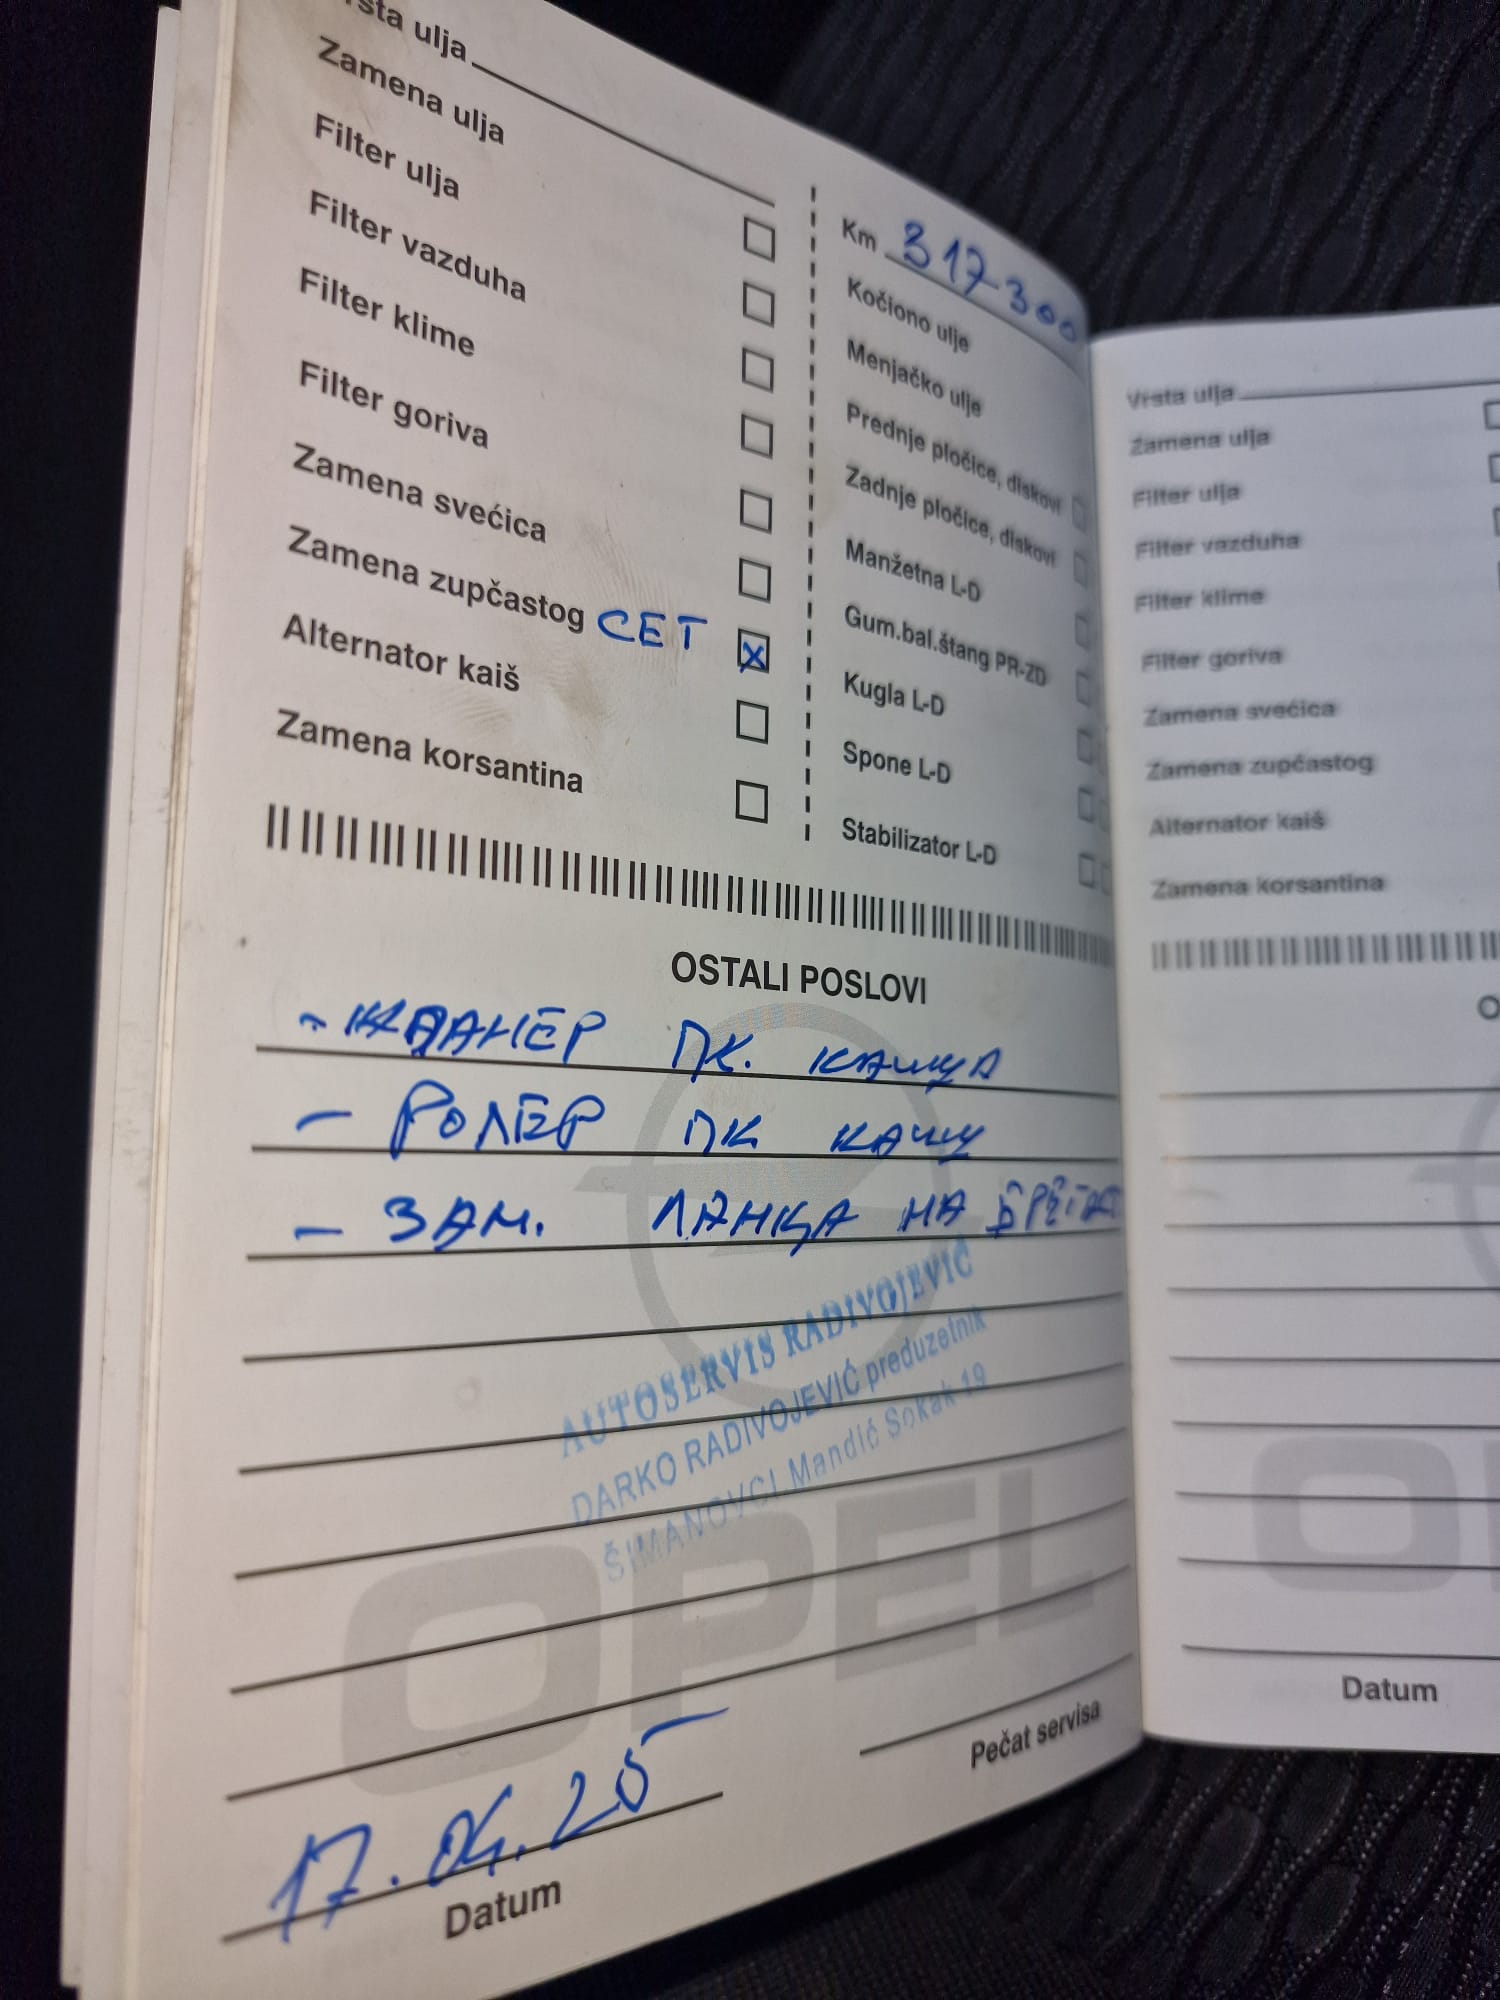 Vrsta ulja
Zamena ulja
Filter ulja
Filter vazduha
Filter klime
Filter goriva
Zamena svećica
Zamena zupčastog СЕТ
Alternator kaiš
Zamena korsantina
Km 317300
Kočiono ulje
Menjačko ulje
Prednje pločice, diskovi
Zadnje pločice, diskovi
Manžetna L-D
Gum.bal.štang PR-ZD
Kugla L-D
Spone L-D
Stabilizator L-D
OSTALI POSLOVI
ПК. КАИША
- РОЛЕР ПК КАИШ
- ЗАМ. ЛАНЦА НА
AUTOSERVIS RADIVOJEVIĆ
DARKO RADIVOJEVIĆ preduzetnik
ŠIMANOVCI, Mandić Sokak 19
OPEL
17.04.25
Datum
Pečat servisa
Vrsta ulja
Zamena ulja
Filter ulja
Filter vazduha
Filter klime
Filter goriva
Zamena svećica
Zamena zupčastog
Alternator kaiš
Zamena korsantina
O
O
Datum